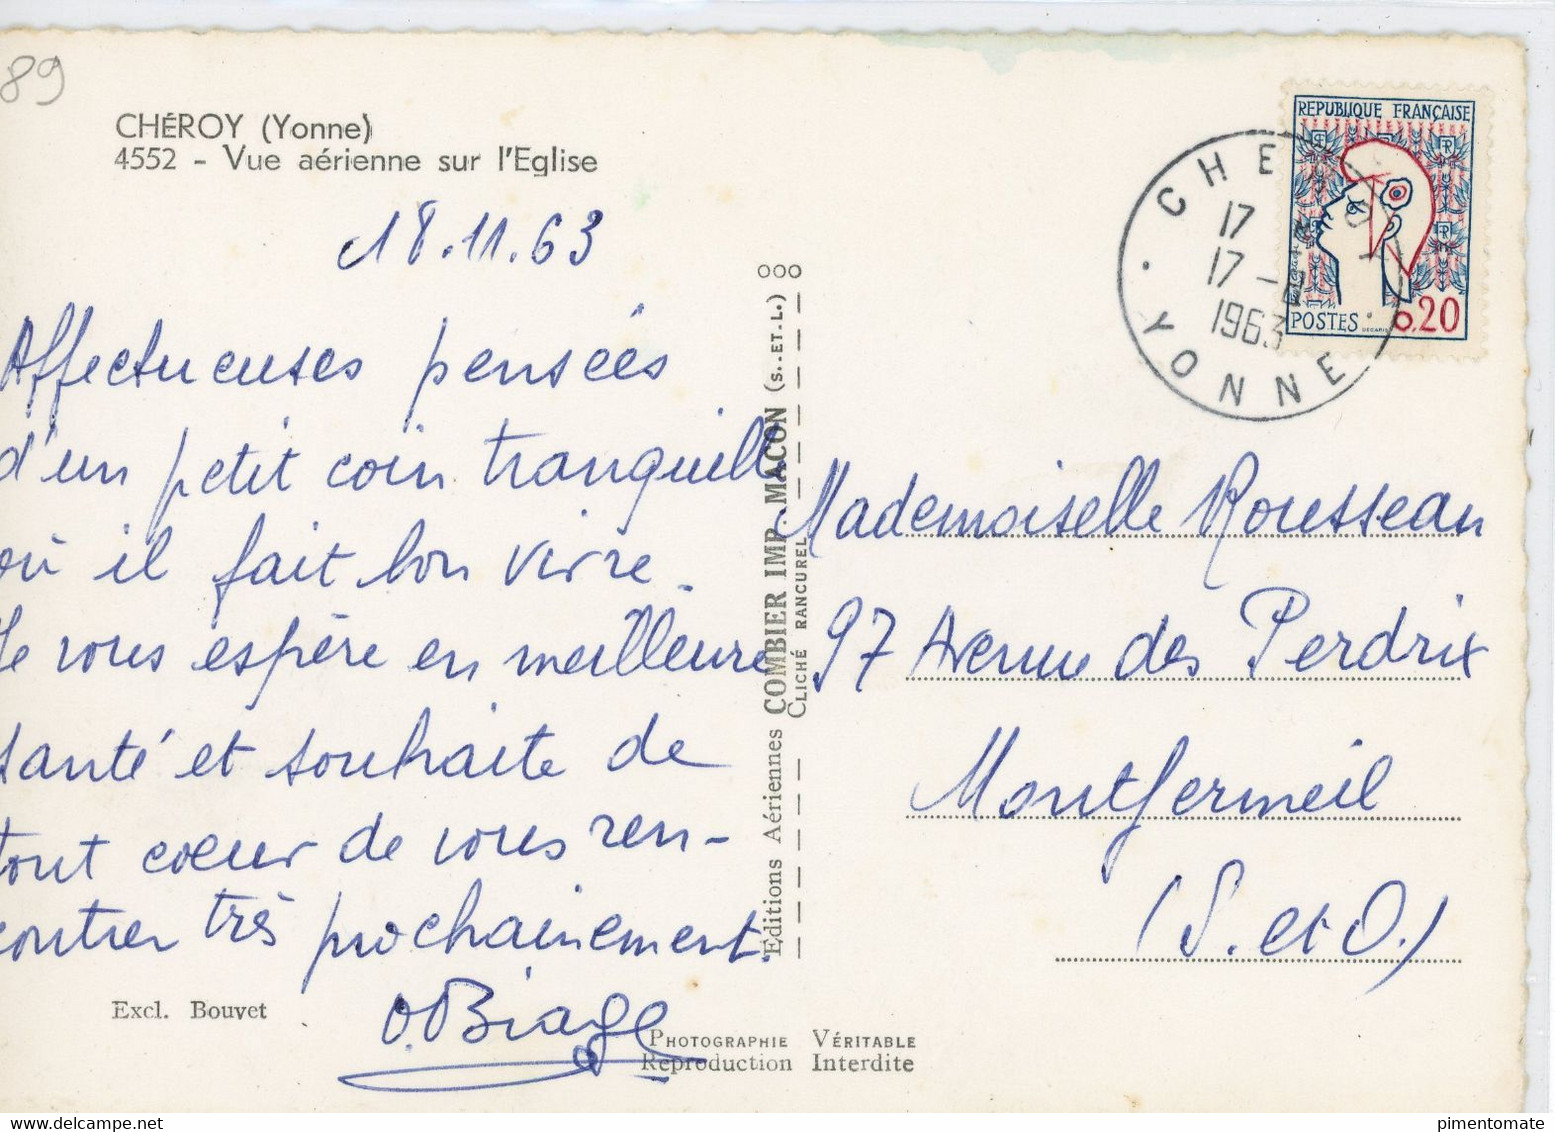 89
CHÉROY (Yonne)
4552 - Vue aérienne sur l'Eglise
18.11.63
Affectueuses pensées
d'un petit coin tranquille
où il fait bon vivre.
Je vous espère en meilleure
santé et souhaite de
tout coeur de vous ren-
contrer très prochainement.
Excl. Bouvet
Editions Aériennes COMBIER IMP. MACON (S. ET. L.) OOO
CLICHÉ RANCUREL
PHOTOGRAPHIE VÉRITABLE
Reproduction Interdite
REPUBLIQUE FRANÇAISE
POSTES 0,20
DECARIS
CHEROY
17
17 -
1963
YONNE
Mademoiselle Rousseau
97 Avenue des Perdrix
Montfermeil
(S. et O.)
pimentomate